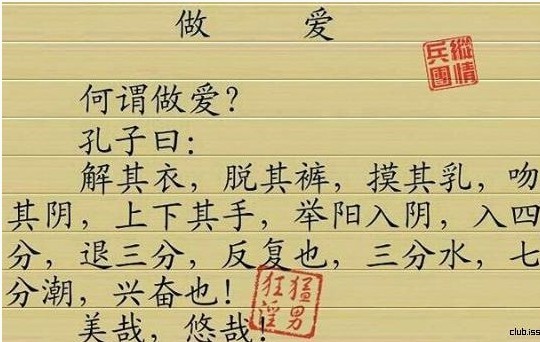 做 爱
縱情兵團
何谓做爱?
孔子曰:
解其衣,脱其裤,摸其乳,吻
其阴,上下其手,举阳入阴,入四
分,退三分,反复也,三分水,七
分潮,兴奋也!
猛男狂淫
美哉,悠哉!
club.iss